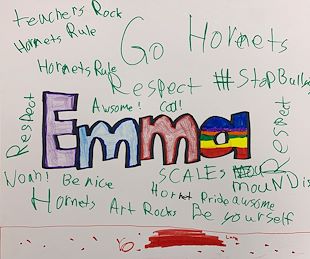 teachers Rock
Hornets Rule
Go Hornets
Hornets Rule
Respect #StopBully
Awsome! Cool!
Respect
Emma
Respect
SCALES
mouNDis
Noah! Be nice
Hornet Pride awsome
Hornets Art Rocks Be yourself